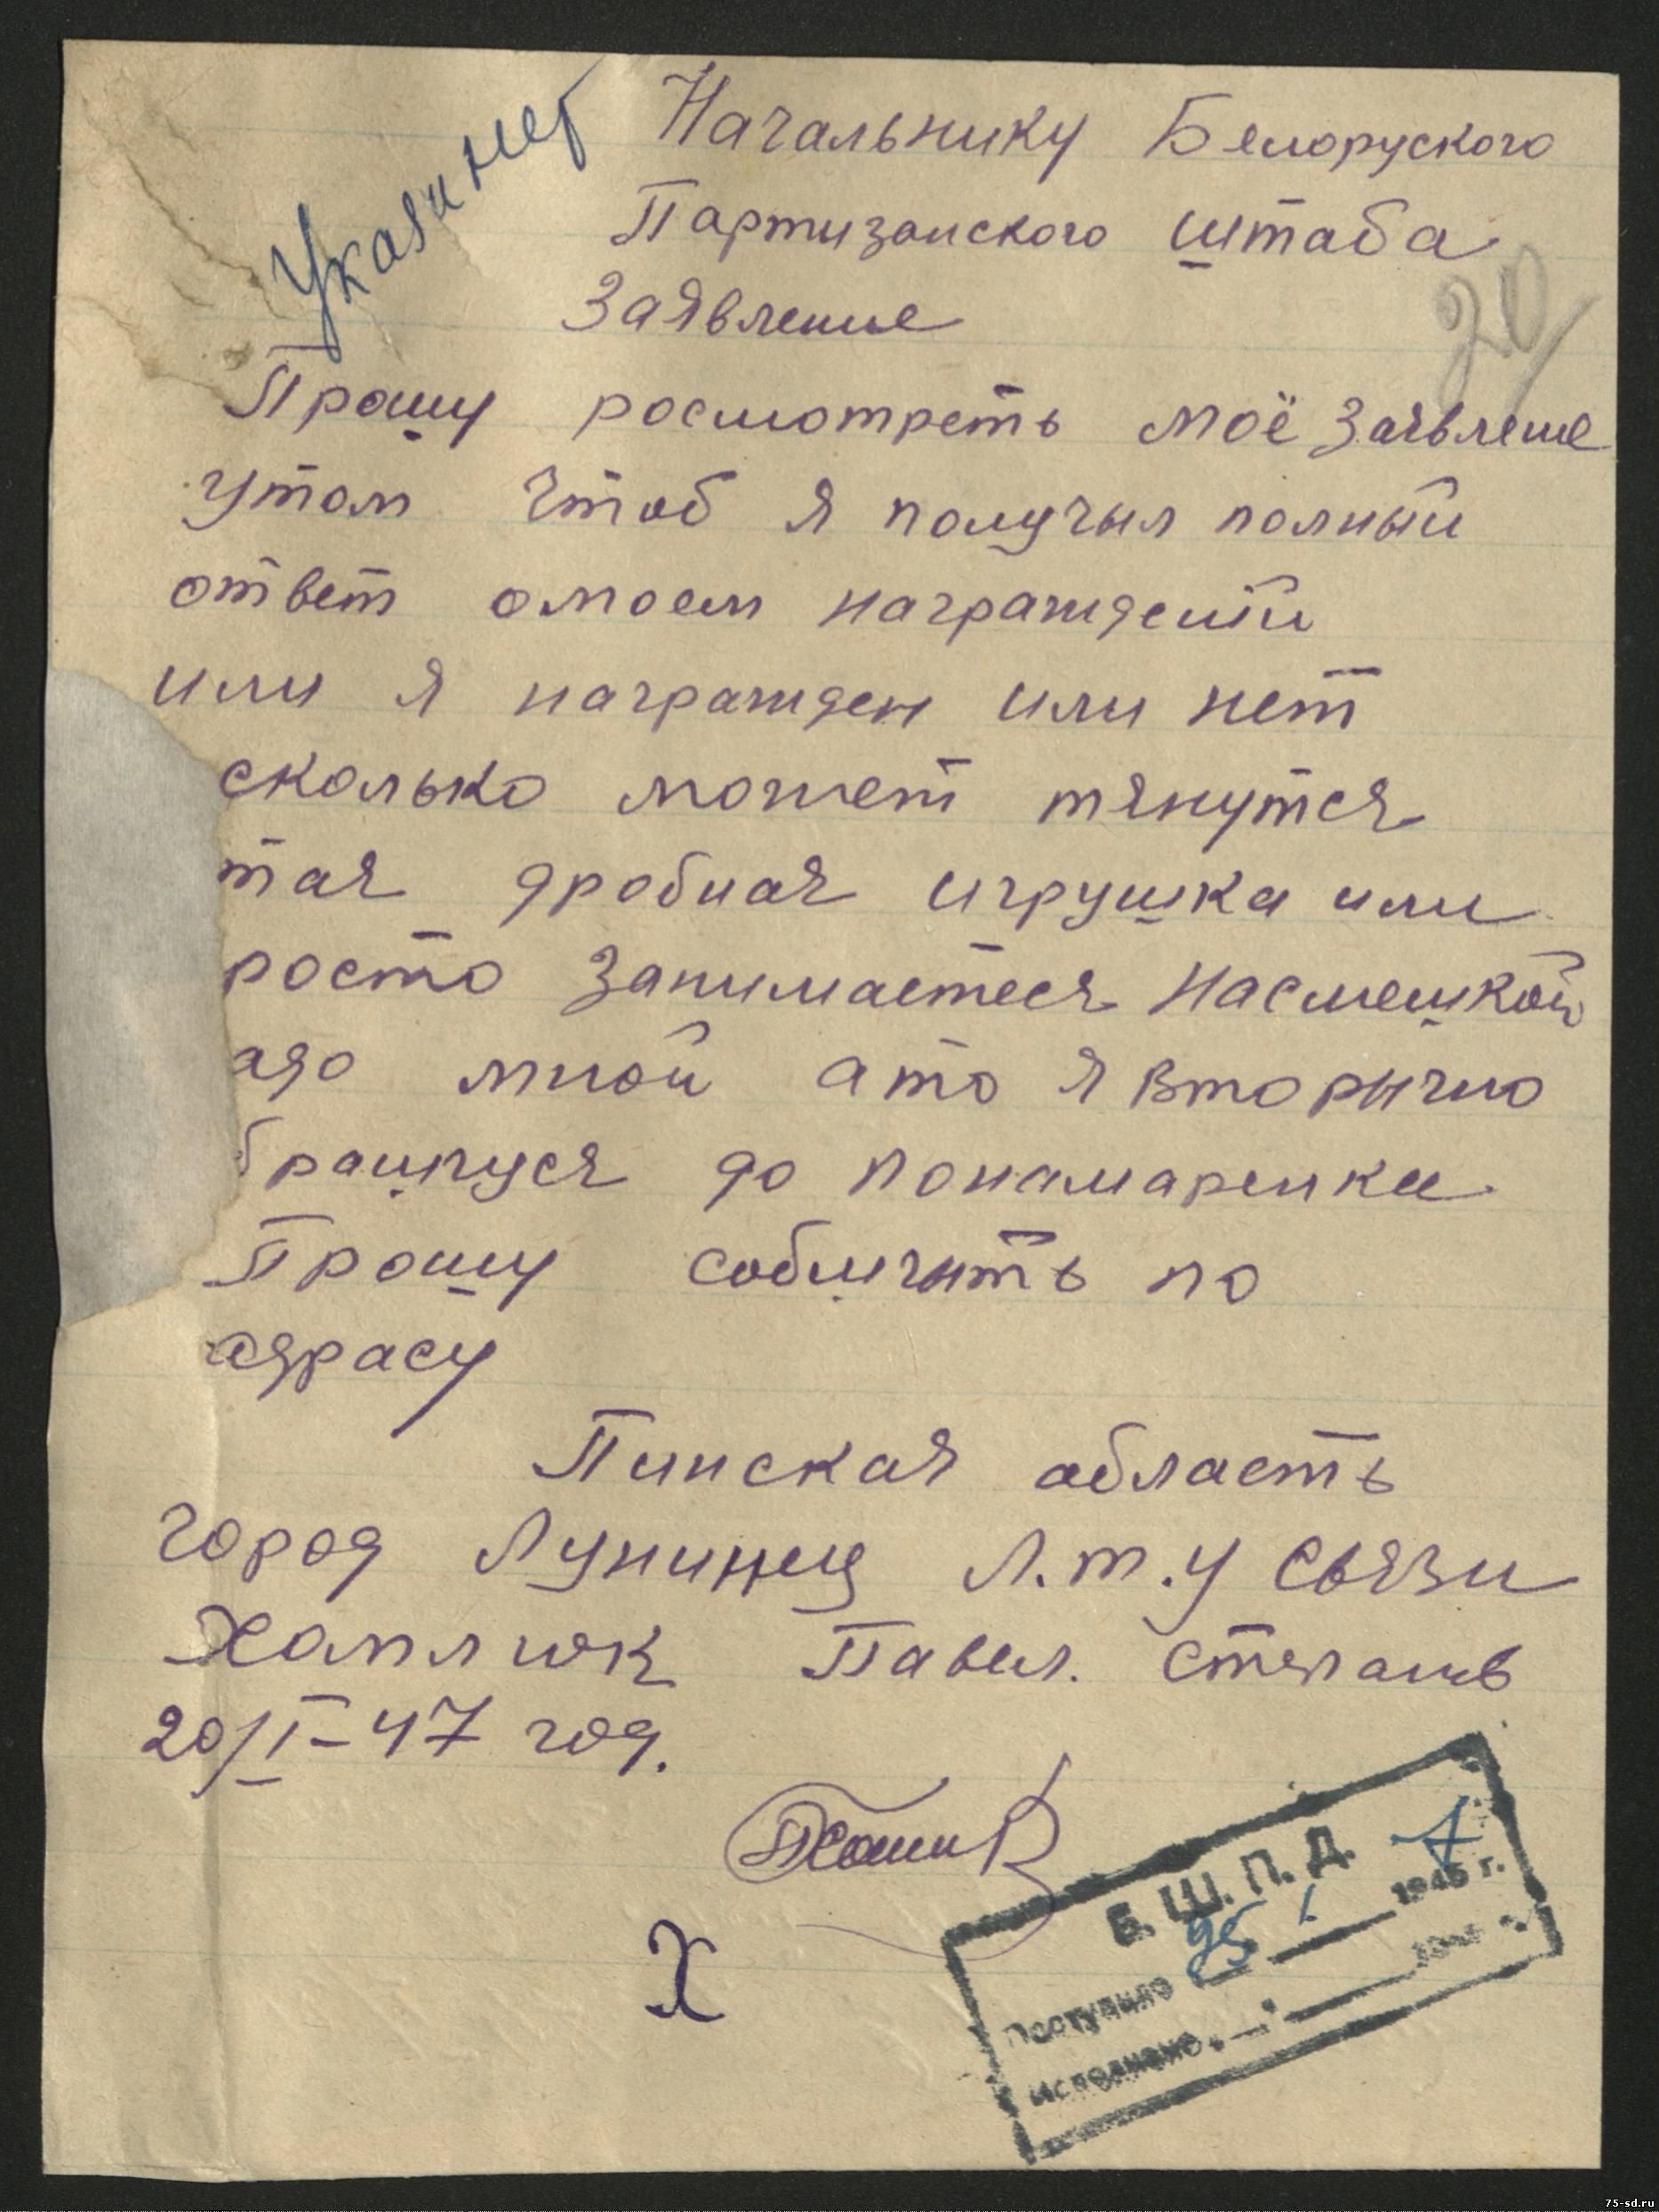 Указа нет
Начальнику Белоруского
Партизанского штаба
20
Заявление
Прошу росмотреть моё Заявление
утом Чтоб я получыл полный
ответ омоем награждений
или я награжден или нет
сколько может тянутся
тая дробная игрушка или
росто Занимаетеся Насмешкой
адо мной ато я вторычно
бращуся до понамаренка
Прошу собщчить по
адрасу
Пинская абласть
город Лунинец Л.т.у Связи
Хамлюк Павел. Степанов
20/I-47 год.
Х
Б. Ш. П. Д. 7
Поступило 25 1 1945 г.
Исполнено
75-sd.ru